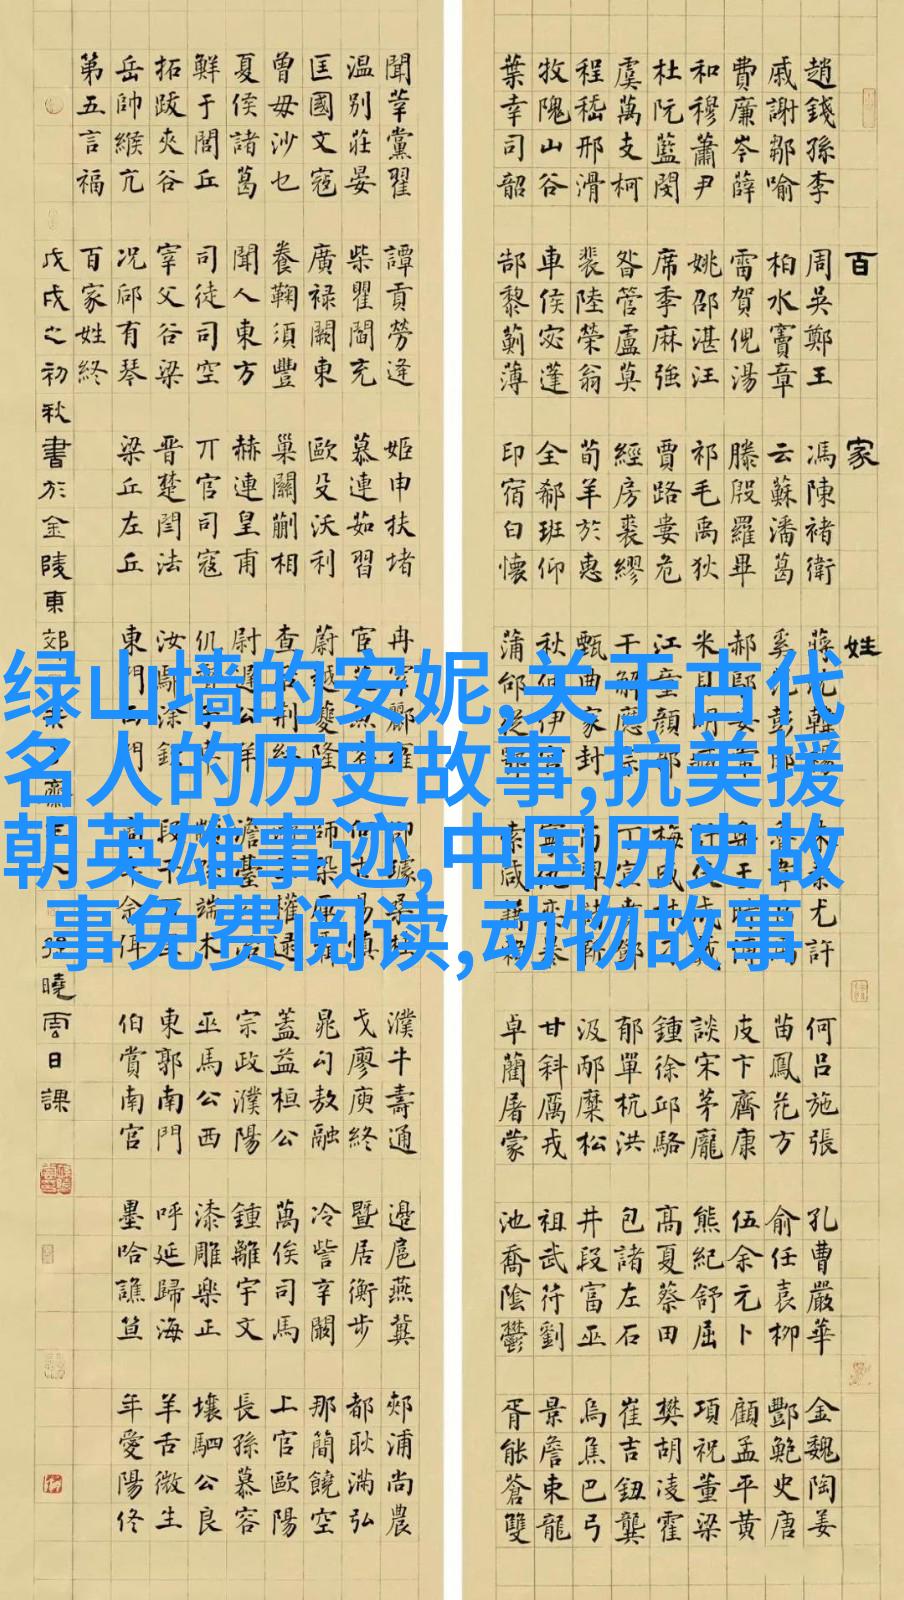 百家姓
趙錢孫李周吳鄭王馮陳褚衛蔣沈韓楊朱秦尤許何呂施張孔曹嚴華金魏陶姜
戚謝鄒喻柏水竇章云蘇潘葛奚范彭郎魯韋昌馬苗鳳花方俞任袁柳酆鮑史唐
費廉岑薛雷賀倪湯滕殷羅畢郝鄔安常樂于時傅皮卞齊康伍余元卜顧孟平黃
和穆蕭尹姚邵湛汪祁毛禹狄米貝明臧計伏成戴談宋茅龐熊紀舒屈項祝董梁
杜阮藍閔席季麻強賈路婁危江童顏郭梅盛林刁鍾徐邱駱高夏蔡田樊胡凌霍
虞萬支柯昝管盧莫經房裘繆干解應宗丁宣賁鄧郁單杭洪包諸左石崔吉鈕龔
程嵇邢滑裴陸榮翁荀羊於惠甄曲家封芮羿儲靳汲邴糜松井段富巫烏焦巴弓
牧隗山谷車侯宓蓬全郗班仰秋仲伊宮寧仇欒暴甘斜厲戎祖武符劉景詹束龍
葉幸司韶郜黎薊薄印宿白懷蒲邰從鄂索咸籍賴卓藺屠蒙池喬陰鬱胥能蒼雙
聞莘黨翟譚貢勞逄姬申扶堵冉宰酈雍郤璩桑桂濮牛壽通邊扈燕冀郟浦尚農
温別莊晏柴瞿閻充慕連茹習宦艾魚容向古易慎戈廖庾終暨居衡步都耿滿弘
匡國文寇廣祿闕東歐殳沃利蔚越夔隆師鞏厙聶晁勾敖融冷訾辛闞那簡饒空
曾毋沙乜養鞠須豐巢關蒯相查后荊紅游竺權逯蓋益桓公萬俟司馬上官歐陽
夏侯諸葛聞人東方赫連皇甫尉遲公羊澹臺公冶宗政濮陽鍾離宇文長孫慕容
鮮于閭丘司徒司空丌官司寇仉督子車顓孫端木巫馬公西漆雕樂正壤駟公良
拓跋夾谷宰父谷梁晉楚閆法汝鄢涂欽段干百里東郭南門呼延歸海羊舌微生
岳帥緱亢况郈有琴梁丘左丘東門西門商牟佘佴伯賞南宮墨哈譙笪年愛陽佟
第五言福百家姓終
戊戌之初秋書於金陵東郊張曉雲日課
绿山墙的安妮,关于古代
名人的历史故事,抗美援
朝英雄事迹,中国历史故
事免费阅读,动物故事